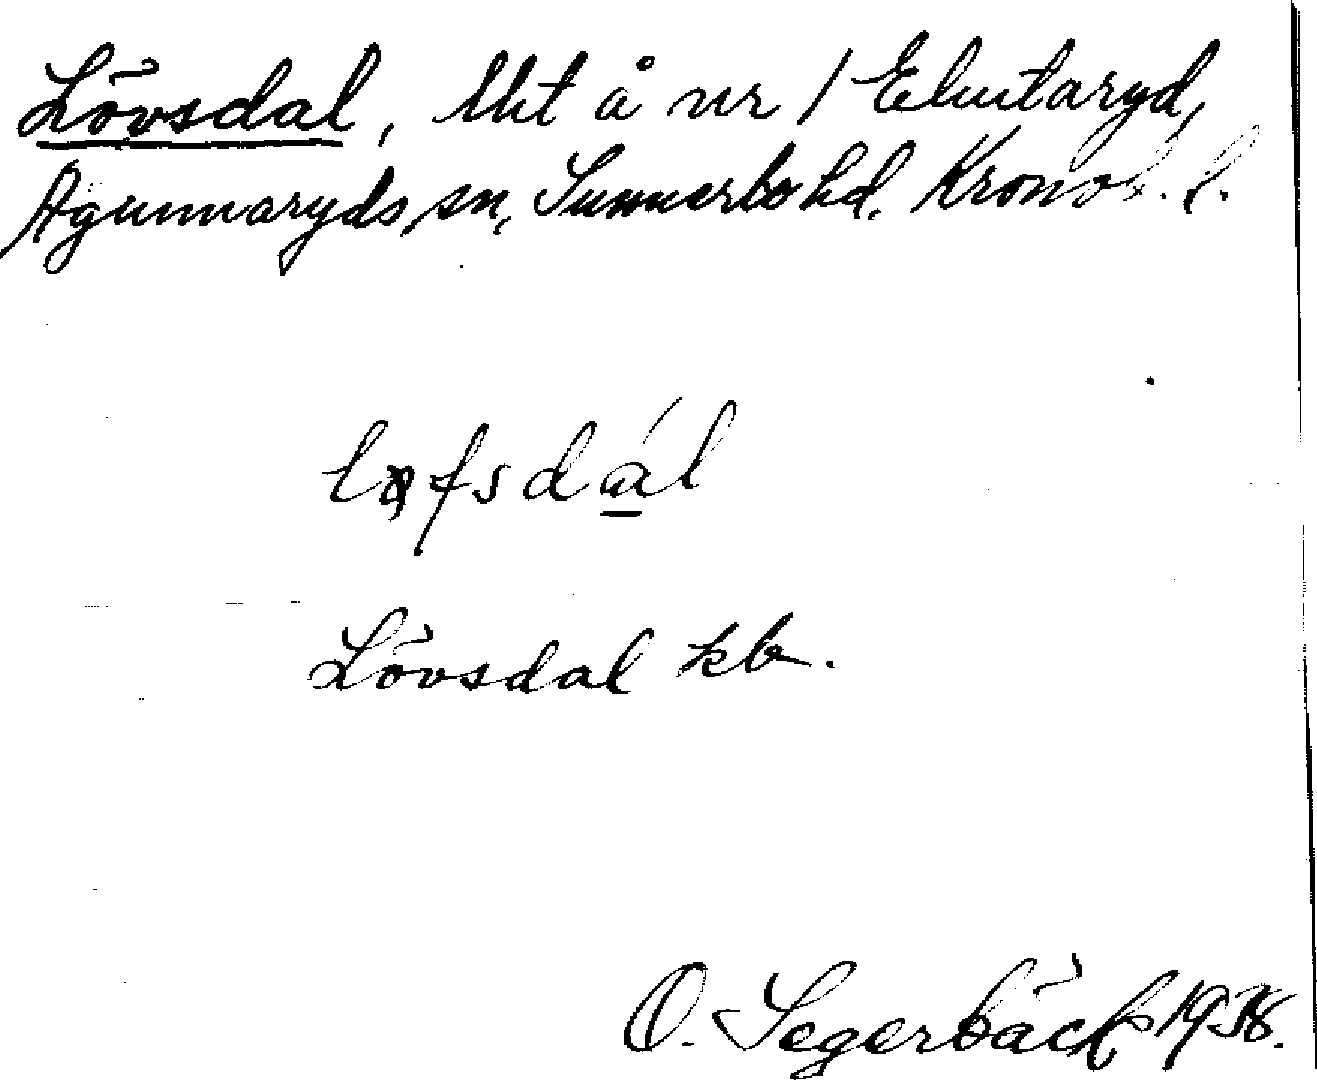 Lövsdal, lht å nr 1 Elmtaryd,
Agunnaryds sn, Sunnerbo hd. Kronob. l.
lǫfsdál
Lövsdal kb.
O. Segerbäck 1938.